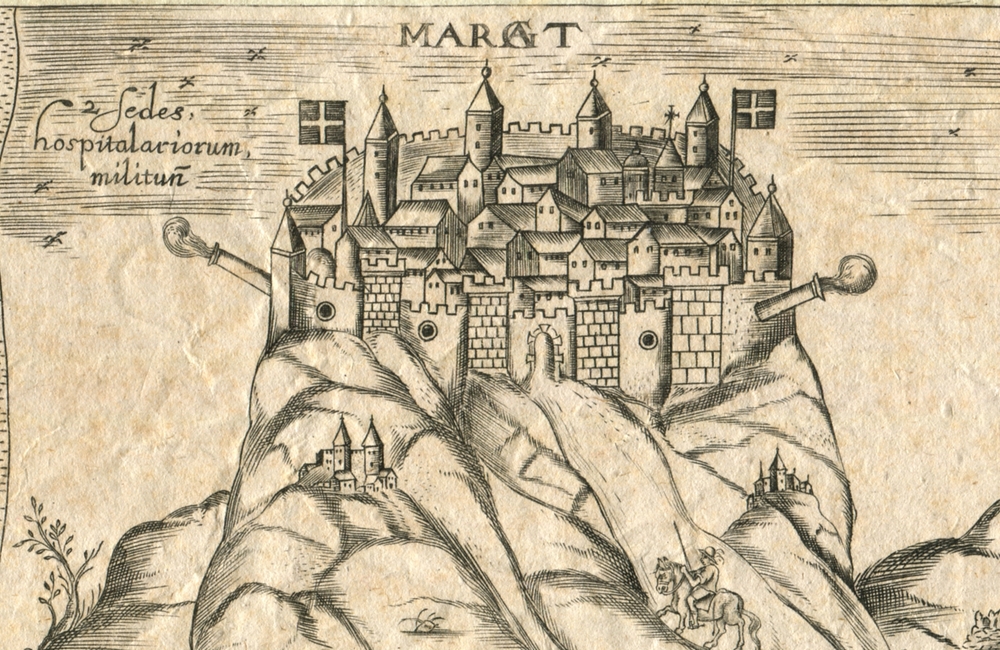 MARGAT
2 Sedes,
hospitalariorum,
militun̄